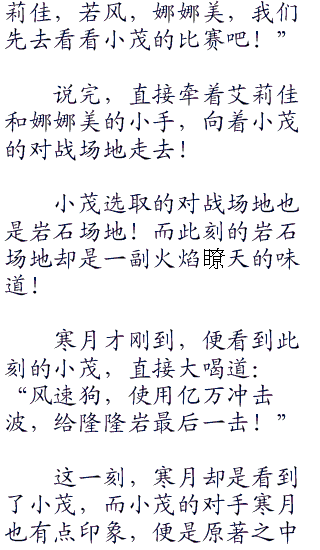 莉佳，若风，娜娜美，我们
先去看看小茂的比赛吧！”
说完，直接牵着艾莉佳
和娜娜美的小手，向着小茂
的对战场地走去！
小茂选取的对战场地也
是岩石场地！而此刻的岩石
场地却是一副火焰瞭天的味
道！
寒月才刚到，便看到此
刻的小茂，直接大喝道：
“风速狗，使用亿万冲击
波，给隆隆岩最后一击！”
这一刻，寒月却是看到
了小茂，而小茂的对手寒月
也有点印象，便是原著之中